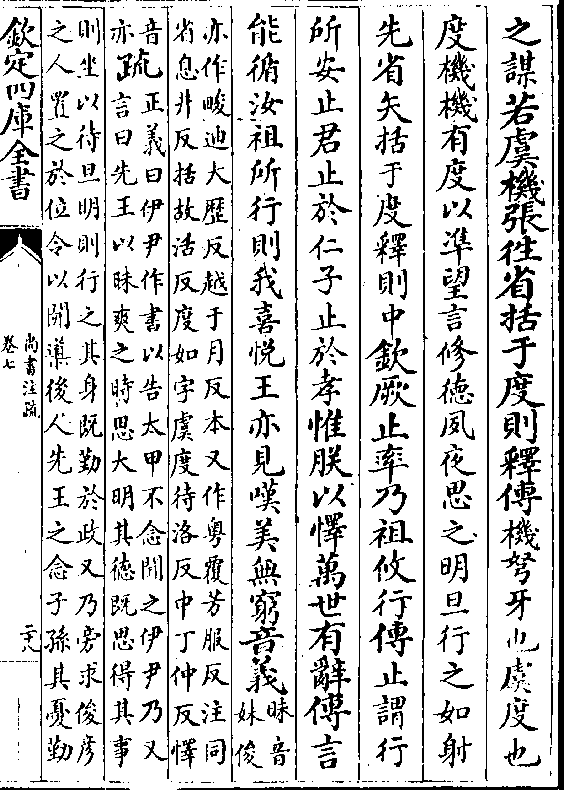 之謀若虞機張往省括于度則釋傳機弩牙也虞度也
度機機有度以準望言修德夙夜思之明旦行之如射
先省矢括于度釋則中欽厥止率乃祖攸行傳止謂行
所安止君止於仁子止於孝惟朕以懌萬世有辭傳言
能循汝祖所行則我喜悦王亦見嘆美無窮音義昧音
妹俊
亦作畯迪大歴反越于月反本又作粤覆芳服反注同
省息井反括故活反度如字虞度待洛反中丁仲反懌
音亦疏正義曰伊尹作書以告太甲不念聞之伊尹乃又
言曰先王以昧爽之時思大明其德既思得其事
則坐以待旦明則行之其身既勤於政又乃旁求俊彦
之人置之於位令以開導後人先王之念子孫其憂勤
欽定四庫全書
尚書注疏
卷七
二十八